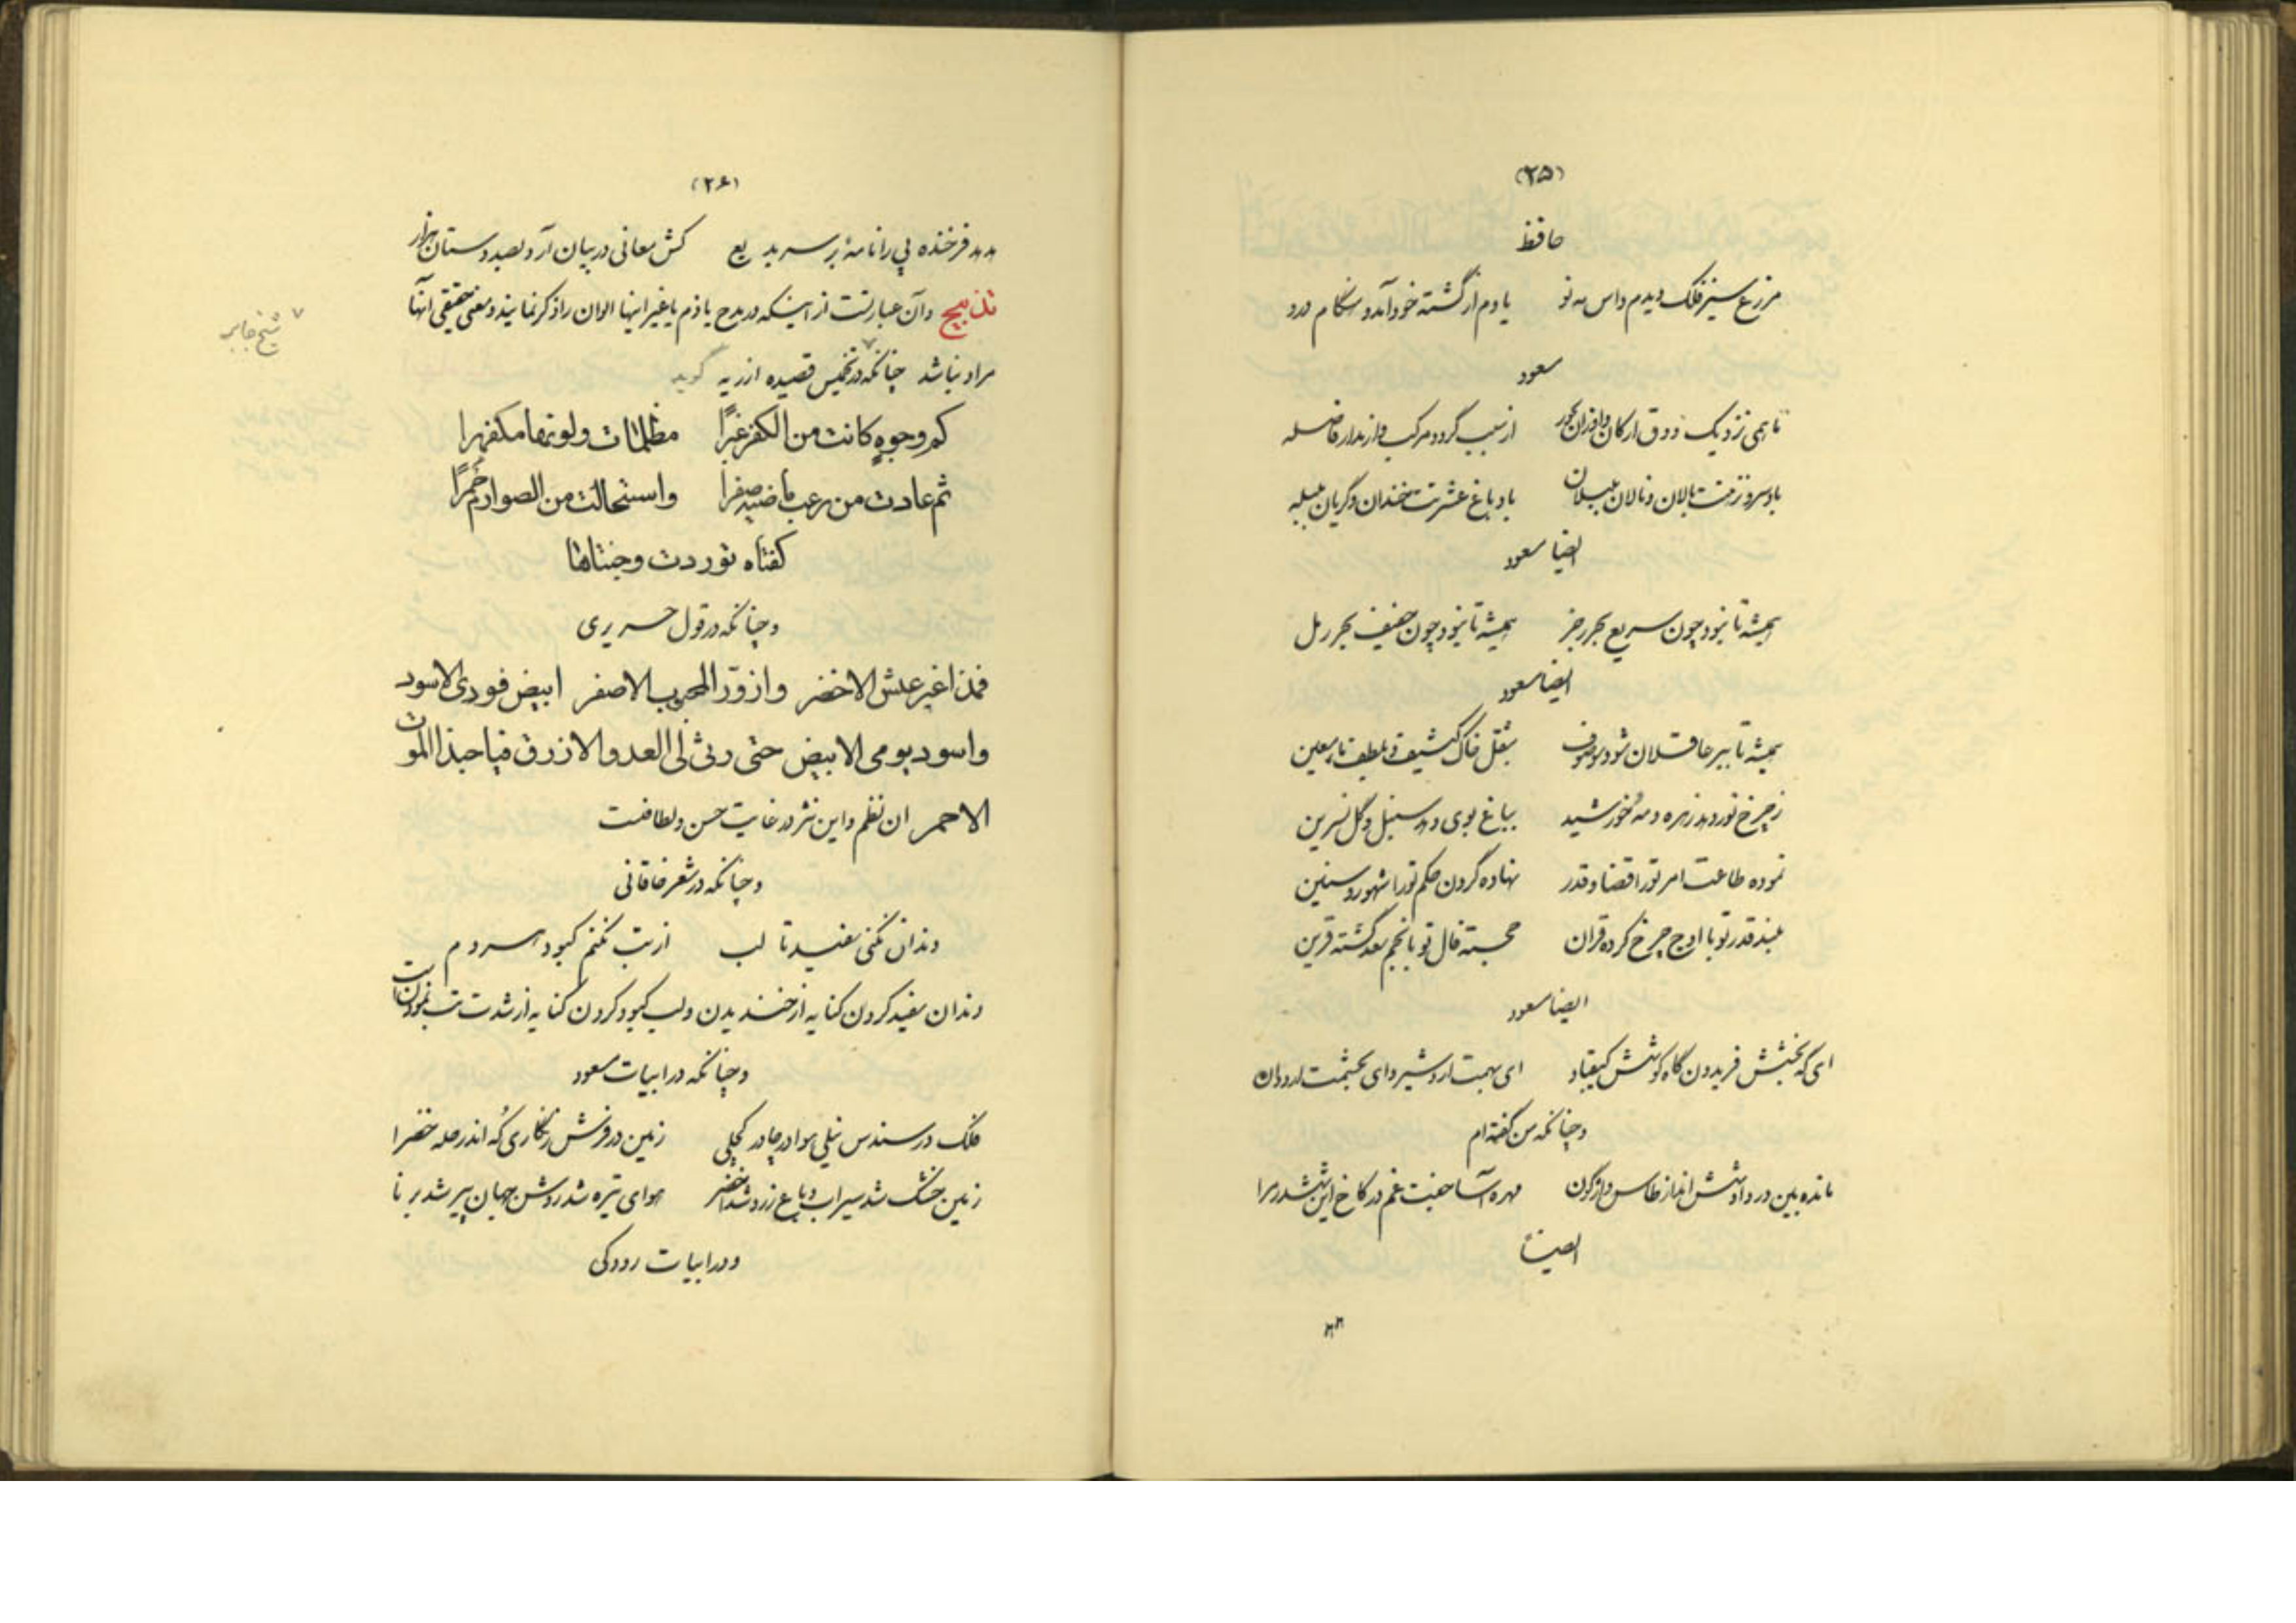 (۲۵)
حافظ
مزرع سبز فلک دیدم و داس مه نو یادم از کشته خود آمد و هنگام درو
مسعود
تا همی نزدیک ذوق ارکان و اوزان بحور از سبب گردد مرکب و از مدار فاصله
باد سرو نزهتت بالان و نالان بلبلان باد باغ عشرتت خندان و گریان بلبله
ایضا مسعود
همیشه تا نبود چون سریع بحر رجز همیشه تا نبود چون خفیف بحر رمل
ایضا مسعود
همیشه تا بر عاقلان شود موصوف بثقل خاک کثیف و بلطف ماء معین
ز چرخ نور دهد زهره و مه و خورشید بباغ بوی دهد سنبل و گل نسرین
نموده طاعت امر تو را قضا و قدر نهاده گردن حکم تو را شهور و سنین
بلند قدر تو با اوج چرخ کرده قران خجسته فال تو با نجم سعد گشته قرین
ایضا مسعود
ای گه بخشش فریدون گاه کوشش کیقباد ای بهمت اردشیر و ای بحشمت اردوان
و چنانکه من گفته ام
مانده بین در داو شش انداز طاس واژگون مهره آسا جفت غم در کاخ این ششدر مرا
ایضاً
(۲۶)
هدهد فرخنده پی را نامهٔ بر سر بدیع کش معانی در بیان آرد بصد دستان هزار
تدبیج و آن عبارتست از اینکه در مدح یا ذم یا غیر اینها الوان را ذکر نمایند و معنی حقیقی آنها
مراد نباشد چنانکه در تخمیس قصیده ازریه گوید
شیخ جابر
کم وجوه کانت من الکفر غبرًا مظلمات ولونها مکفهرا
ثم عادت من رعب ماضیه صفرا واستحالت من الصوارم حُمرًا
کفتاه توردت وجنتاها
و چنانکه در قول حریری
فمذ اغبر عیش الاخضر وازورّ المحبوب الاصفر ابیض فودی الاسود
واسود یومی الابیض حتی رثی لی العدو الازرق فیا حبذا الموت
الاحمر ان نظم و این نثر در غایت حسن و لطافت
و چنانکه در شعر خاقانی
دندان نکنی سفید تا لب از تب نکنم کبود هر دم
دندان سفید کردن کنایه از خندیدن و لب کبود کردن کنایه از شدت تب نمودن است
و چنانکه در ابیات مسعود
فلک در سندس نیلی هوا در چادر کحلی زمین در فرش زنگاری که اندر حله خضرا
زمین خشک شد سیراب و باغ زرد شد اخضر هوای تیره شد روشن جهان پیر شد برنا
و در ابیات رودکی